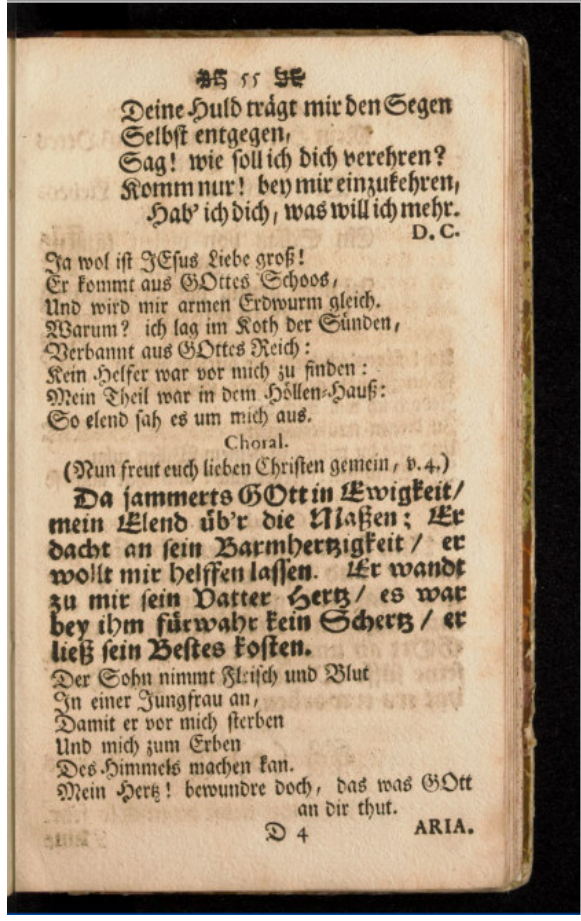 55
Deine Huld trägt mir den Segen
Selbst entgegen,
Sag! wie soll ich dich verehren?
Komm nur! bey mir einzukehren,
Hab' ich dich, was will ich mehr.
D. C.
Ja wol ist JEsus Liebe groß!
Er kommt aus GOttes Schoos,
Und wird mir armen Erdwurm gleich.
Warum? ich lag im Koth der Sünden,
Verbannt aus GOttes Reich:
Kein Helfer war vor mich zu finden:
Mein Theil war in dem Höllen-Hauß:
So elend sah es um mich aus.
Choral.
(Nun freut euch lieben Christen gemein, v. 4.)
Da jammerts GOtt in Ewigkeit/
mein Elend üb'r die Maßen; Er
dacht an sein Barmhertzigkeit / er
wollt mir helffen lassen. Er wandt
zu mir sein Vatter Hertz/ es war
bey ihm fürwahr kein Schertz / er
ließ sein Bestes kosten.
Der Sohn nimmt Fleisch und Blut
In einer Jungfrau an,
Damit er vor mich sterben
Und mich zum Erben
Des Himmels machen kan.
Mein Hertz! bewundre doch, das was GOtt
an dir thut.
D 4 ARIA.